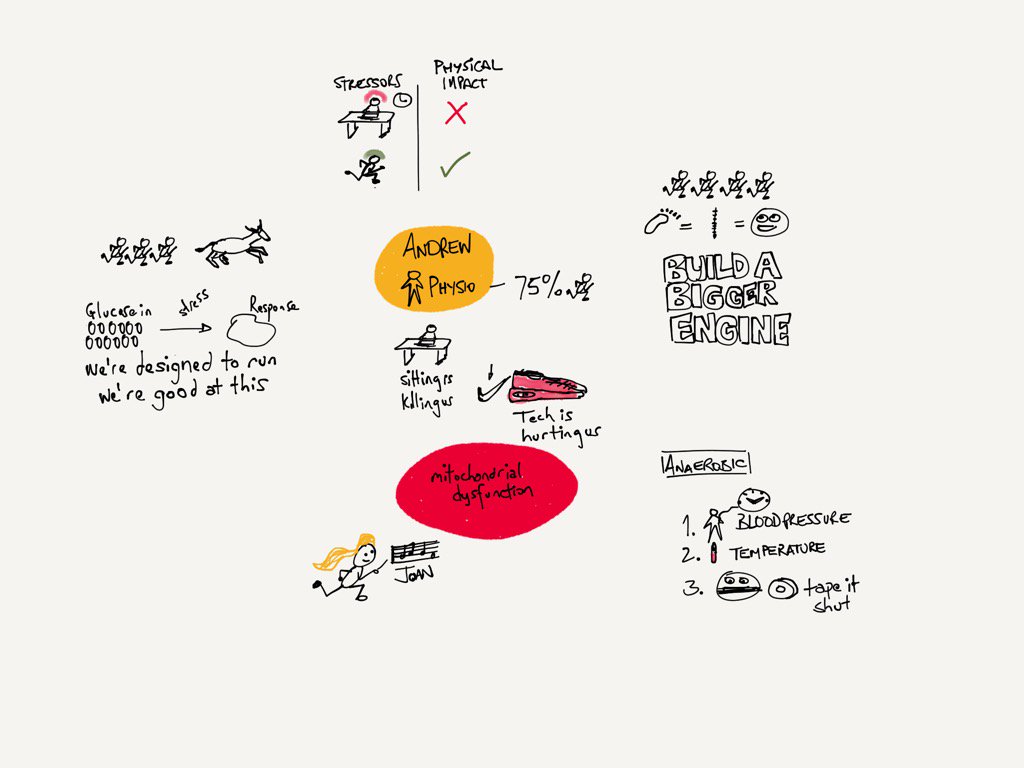 STRESSORS
PHYSICAL
IMPACT
ANDREW
PHYSIO
75%
Glucose in
stress
Response
we're designed to run
we're good at this
sitting is
killing us
Tech is
hurting us
mitochondrial
dysfunction
JOAN
= =
BUILD A
BIGGER
ENGINE
ANAEROBIC
1. BLOOD PRESSURE
2. TEMPERATURE
3. tape it
shut